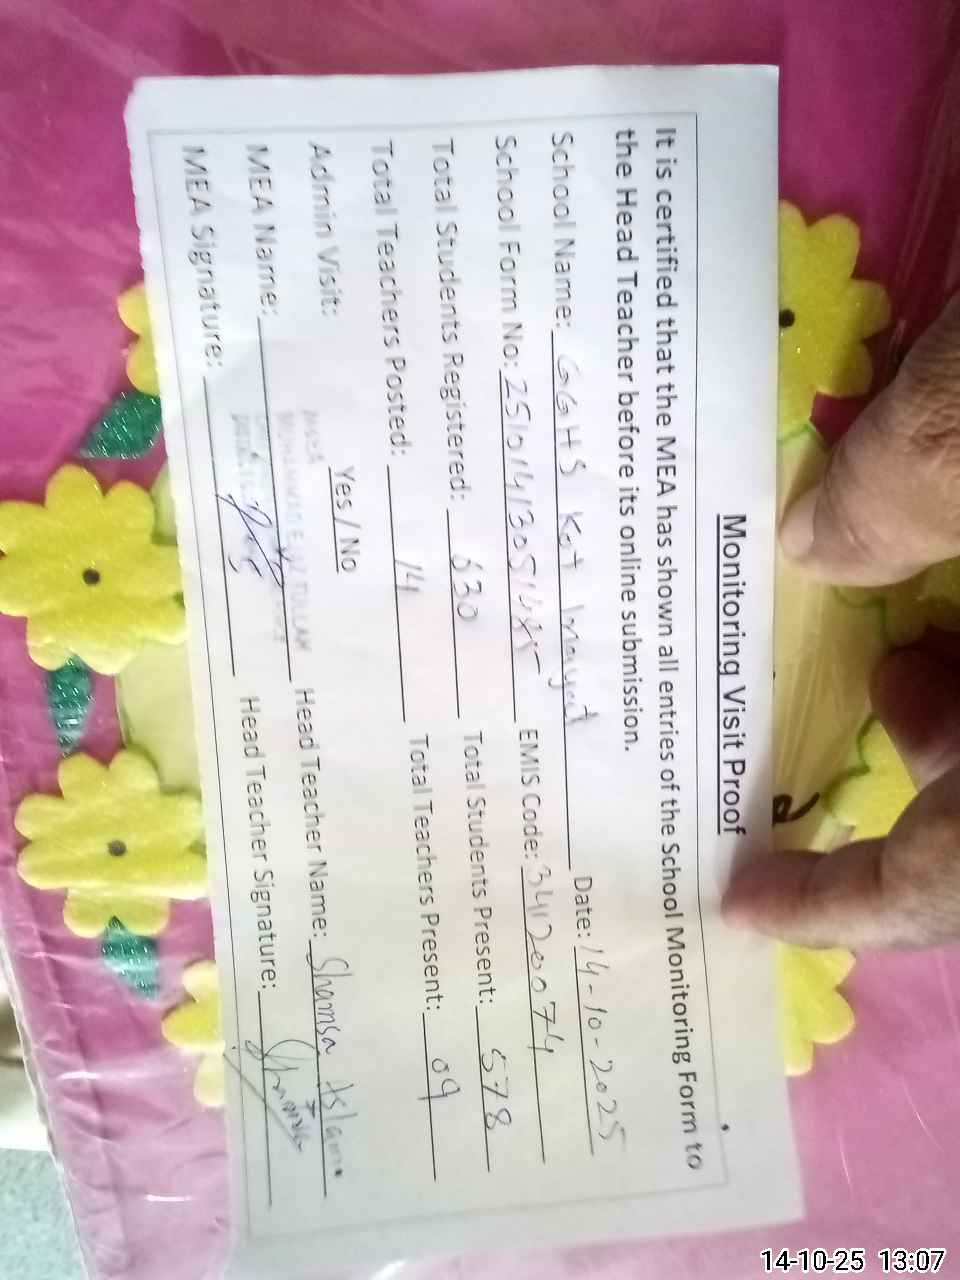 Monitoring Visit Proof
It is certified that the MEA has shown all entries of the School Monitoring Form to
the Head Teacher before its online submission.
School Name: GGHS Kot Inayat Date: 14-10-2025
School Form No: EMIS Code: 34120074
Total Students Registered: 630 Total Students Present: 578
Total Teachers Posted: 14 Total Teachers Present: 09
Admin Visit: Yes / No
MEA Name: Head Teacher Name: Shamsa Aslam
MEA Signature: Head Teacher Signature: Shamsa
14-10-25 13:07